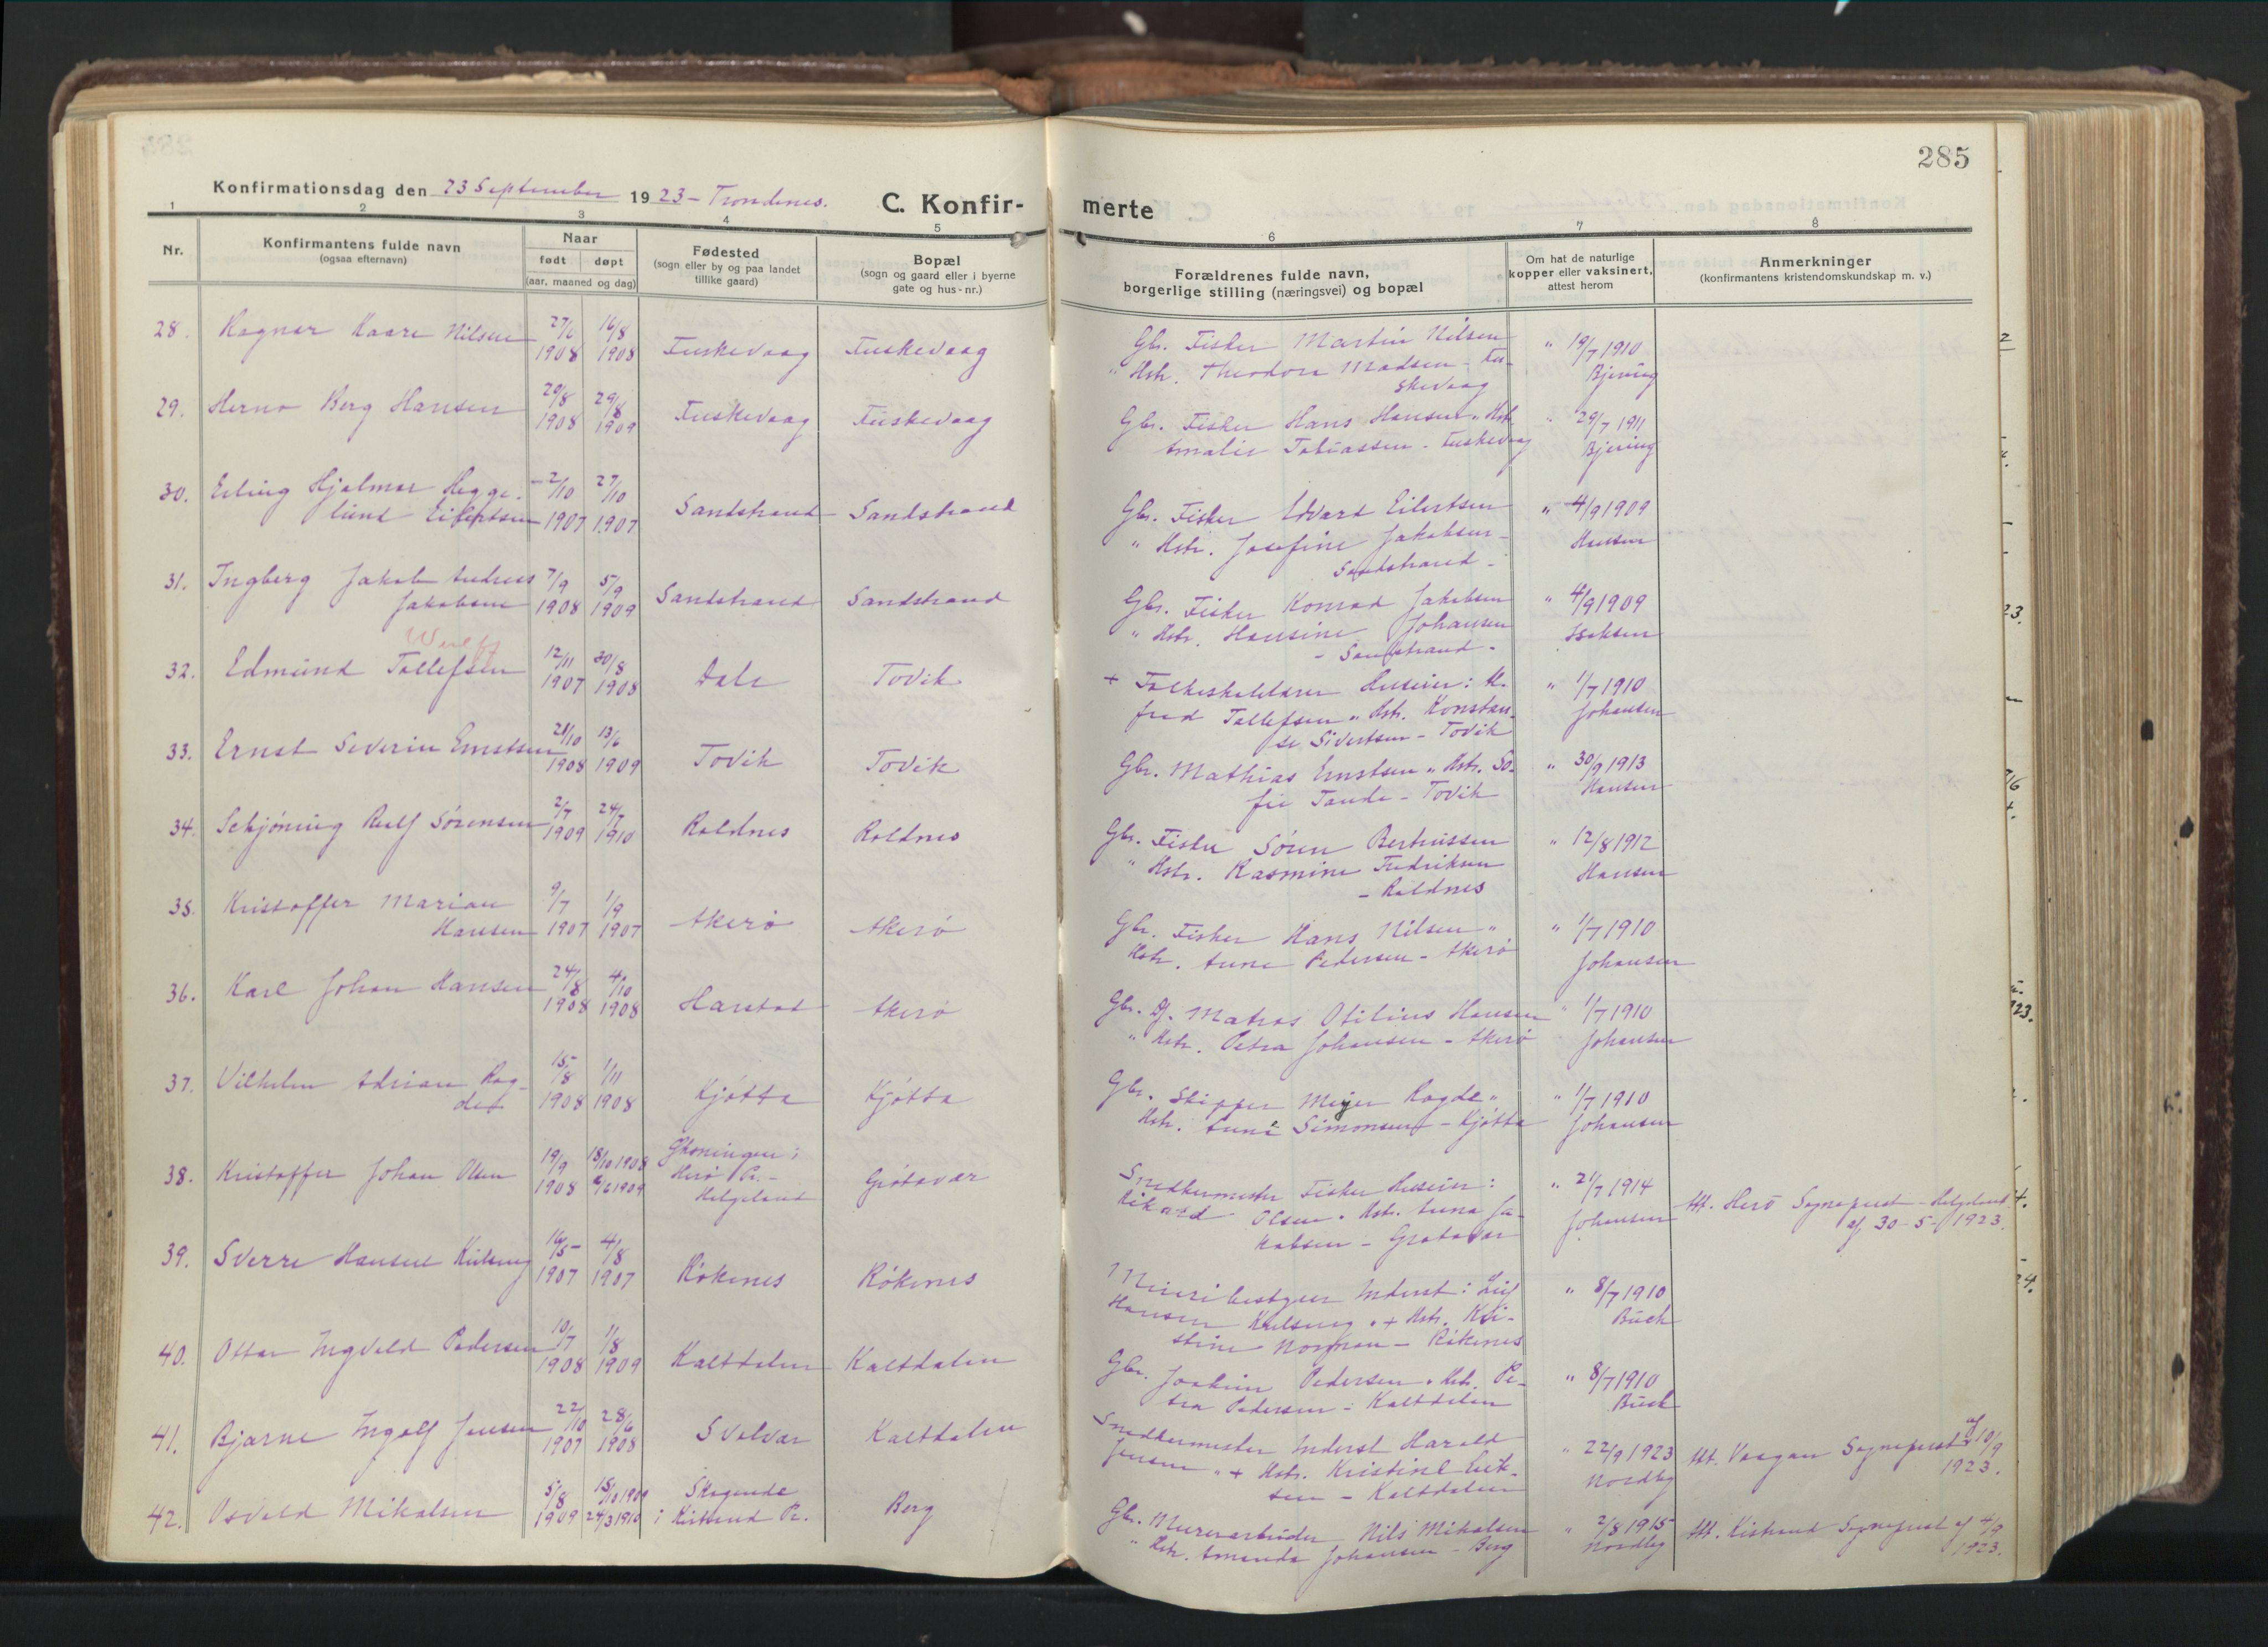 285
Konfirmationsdag den 23 September 1923 - Trondenes.
C. Konfirmerte
1 2 3 4 5 6 7 8
Nr.
Konfirmantens fulde navn
(ogsaa efternavn)
Naar
født døpt
(aar, maaned og dag)
Fødested
(sogn eller by og paa landet
tillike gaard)
Bopæl
(sogn og gaard eller i byerne
gate og hus-nr.)
Forældrenes fulde navn,
borgerlige stilling (næringsvei) og bopæl
Om hat de naturlige
kopper eller vaksinert,
attest herom
Anmerkninger
(konfirmantens kristendomskundskap m. v.)
28. Ragnar Kaare Nilsen 27/6 1908 16/8 1908 Fuskevaag Fuskevaag
Gbr. Fisker Martin Nilsen
" Hstr. Theodora Madsen - Fu-
skevaag
" 19/7 1910
Bjering
29. Herno Berg Hansen 29/8 1908 29/8 1909 Fuskevaag Fuskevaag
Gbr. Fisker Hans Hansen " Hstr.
Amalie Tobiassen - Fuskevaag
" 29/7 1911
Bjering
30. Erling Hjalmar Hegge-
lund Eilertsen 2/10 1907 27/10 1907 Sandstrand Sandstrand
Gbr. Fisker Edvard Eilertsen
" Hstr. Josefine Jakobsen -
Sandstrand -
" 4/9 1909
Hansen
31. Ingberg Jakob Andreas
Jakobsen 7/9 1908 5/9 1909 Sandstrand Sandstrand
Gbr. Fisker Konrad Jakobsen
" Hstr. Hansine Johansen
- Sandstrand -
" 4/9 1909
Isaksen
32. Edmund Tollefsen 12/11 1907 30/8 1908 Dale Tovik
+ Folkeskolelærer Huseier: A.
fred Tollefsen " Hstr. Konstan-
se Sivertsen - Tovik
" 1/7 1910
Johansen
33. Ernst Severin Ernstsen 21/10 1908 13/6 1909 Tovik Tovik
Gbr. Mathias Ernstsen " Hstr. So-
fie Tande - Tovik
" 30/9 1913
Hansen
34. Schjøning Rolf Sørensen 2/7 1909 24/7 1910 Roldnes Roldnes
Gbr. Fisker Søren Berthissen
" Hstr. Rasmine Fredriksen
- Roldnes
" 12/8 1912
Hansen
35. Kristoffer Marian
Hansen 9/7 1907 1/9 1907 Akerø Akerø
Gbr. Fisker Hans Nilsen "
Hstr. Anne Pedersen - Akerø
" 1/7 1910
Johansen
36. Karl Johan Hansen 24/8 1908 4/10 1908 Harstad Akerø
Gbr. Dj. Matros Otilius Hansen
" Hstr. Petra Johansen - Akerø
" 1/7 1910
Johansen
37. Vilhelm Adrian Rog-
de 15/8 1908 1/11 1908 Kjøtta Kjøtta
Gbr. Skipper Meyer Rogde "
Hstr. Anne Simonsen - Kjøtta
" 1/7 1910
Johansen
38. Kristoffer Johan Olsen 19/9 1908 18/10 1908 6/6 1909
Herø Pr. -
Helgeland Grøtavær
Snedkermester Fisker Huseier:
Rikard Olsen " Hstr. Anna Ja-
kobsen - Grøtavær
" 21/7 1914
Johansen
Att. Herø Sogneprest - Helgeland
af 30-5-1923.
39. Sverre Hansen Kulseng 16/5 1907 4/8 1907 Røkenes Røkenes
Meieribestyrer Inderst: Leif
Hansen Kulseng " + Hstr. Kri-
stine Norman - Røkenes
" 8/7 1910
Buch
40. Ottar Ingvald Pedersen 10/7 1908 1/8 1909 Kaltdalen Kaltdalen
Gbr. Joakim Pedersen " Hstr. Pe-
tra Pedersen - Kaltdalen
" 8/7 1910
Buch
41. Bjarne Ingolf Jensen 22/10 1907 28/6 1908 Svolvær Kaltdalen
Snedkermester Inderst Harald
Jensen " + Hstr. Kristine Erik-
sen - Kaltdalen
" 22/9 1923
Nordby
Att. Vaagan Sogneprest af 10/9
1923.
42. Osvald Mikalsen 5/8 1909 15/10 1909 24/3 1910
i Kistrand Pr. Berg
Gbr. Murerarbeider Nils Mikalsen
" Hstr. Amanda Johansen - Berg
" 2/8 1915
Nordby
Att. Kistrand Sogneprest af 4/9
1923.